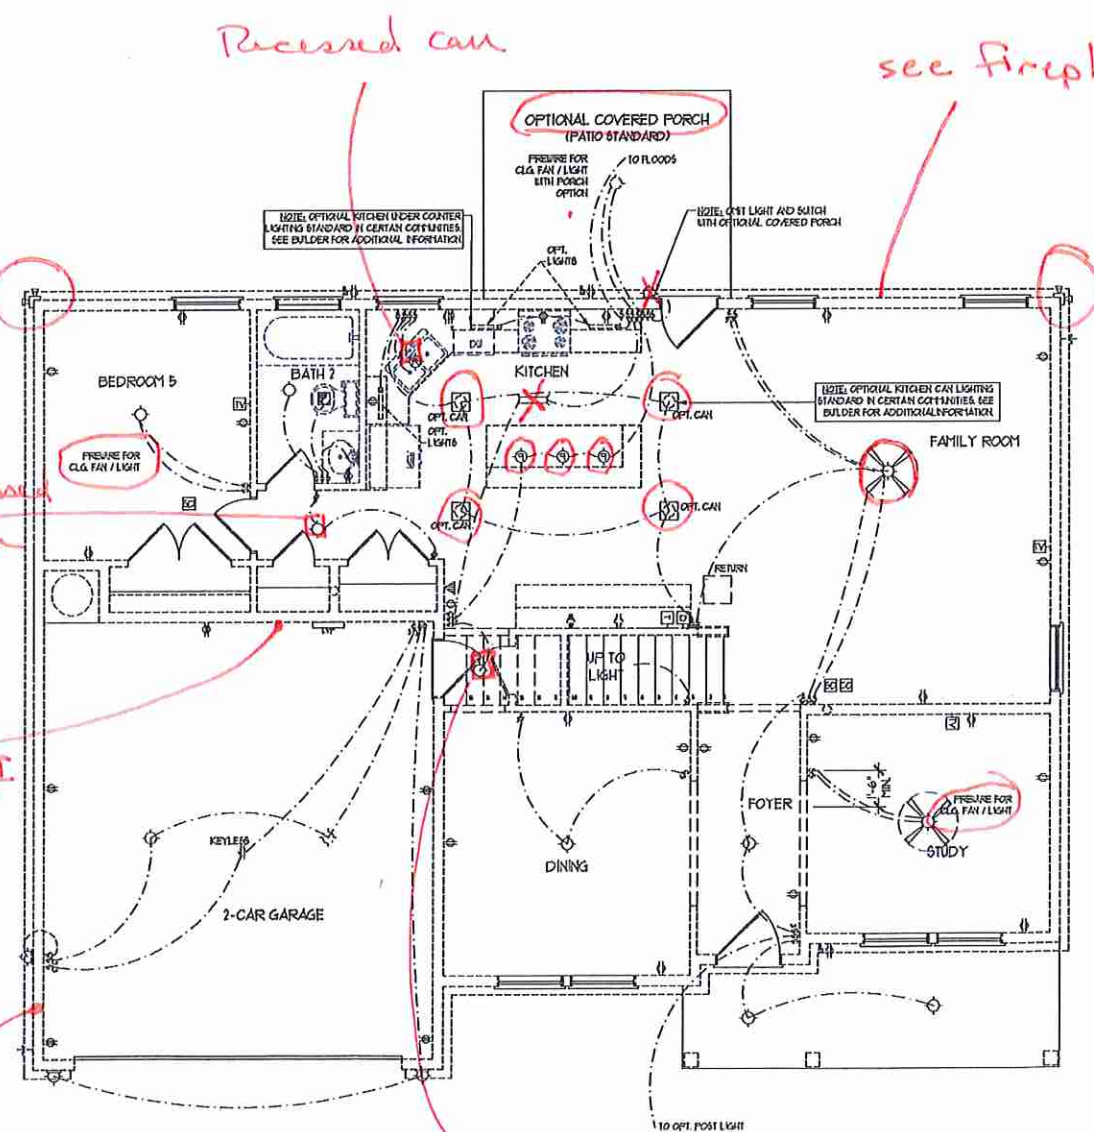 Recessed can
see Firepl
OPTIONAL COVERED PORCH
(PATIO STANDARD)
PREWIRE FOR
CLG. FAN / LIGHT
WITH PORCH
OPTION
TO FLOODS
NOTE: OPTIONAL KITCHEN UNDER COUNTER
LIGHTING STANDARD IN CERTAIN COMMUNITIES.
SEE BUILDER FOR ADDITIONAL INFORMATION
NOTE: OMIT LIGHT AND SWITCH
WITH OPTIONAL COVERED PORCH
OPT.
LIGHTS
BEDROOM 5
BATH 2
DW
KITCHEN
NOTE: OPTIONAL KITCHEN CAN LIGHTING
STANDARD IN CERTAIN COMMUNITIES. SEE
BUILDER FOR ADDITIONAL INFORMATION.
TV
OPT. CAN
OPT. CAN
OPT.
LIGHTS
FAMILY ROOM
PREWIRE FOR
CLG. FAN / LIGHT
OPT. CAN
OPT. CAN
TV
RETURN
UP TO
LIGHT
1'-6"
MIN.
FOYER
PREWIRE FOR
CLG. FAN / LIGHT
STUDY
KEYLESS
DINING
2-CAR GARAGE
TO OPT. POST LIGHT